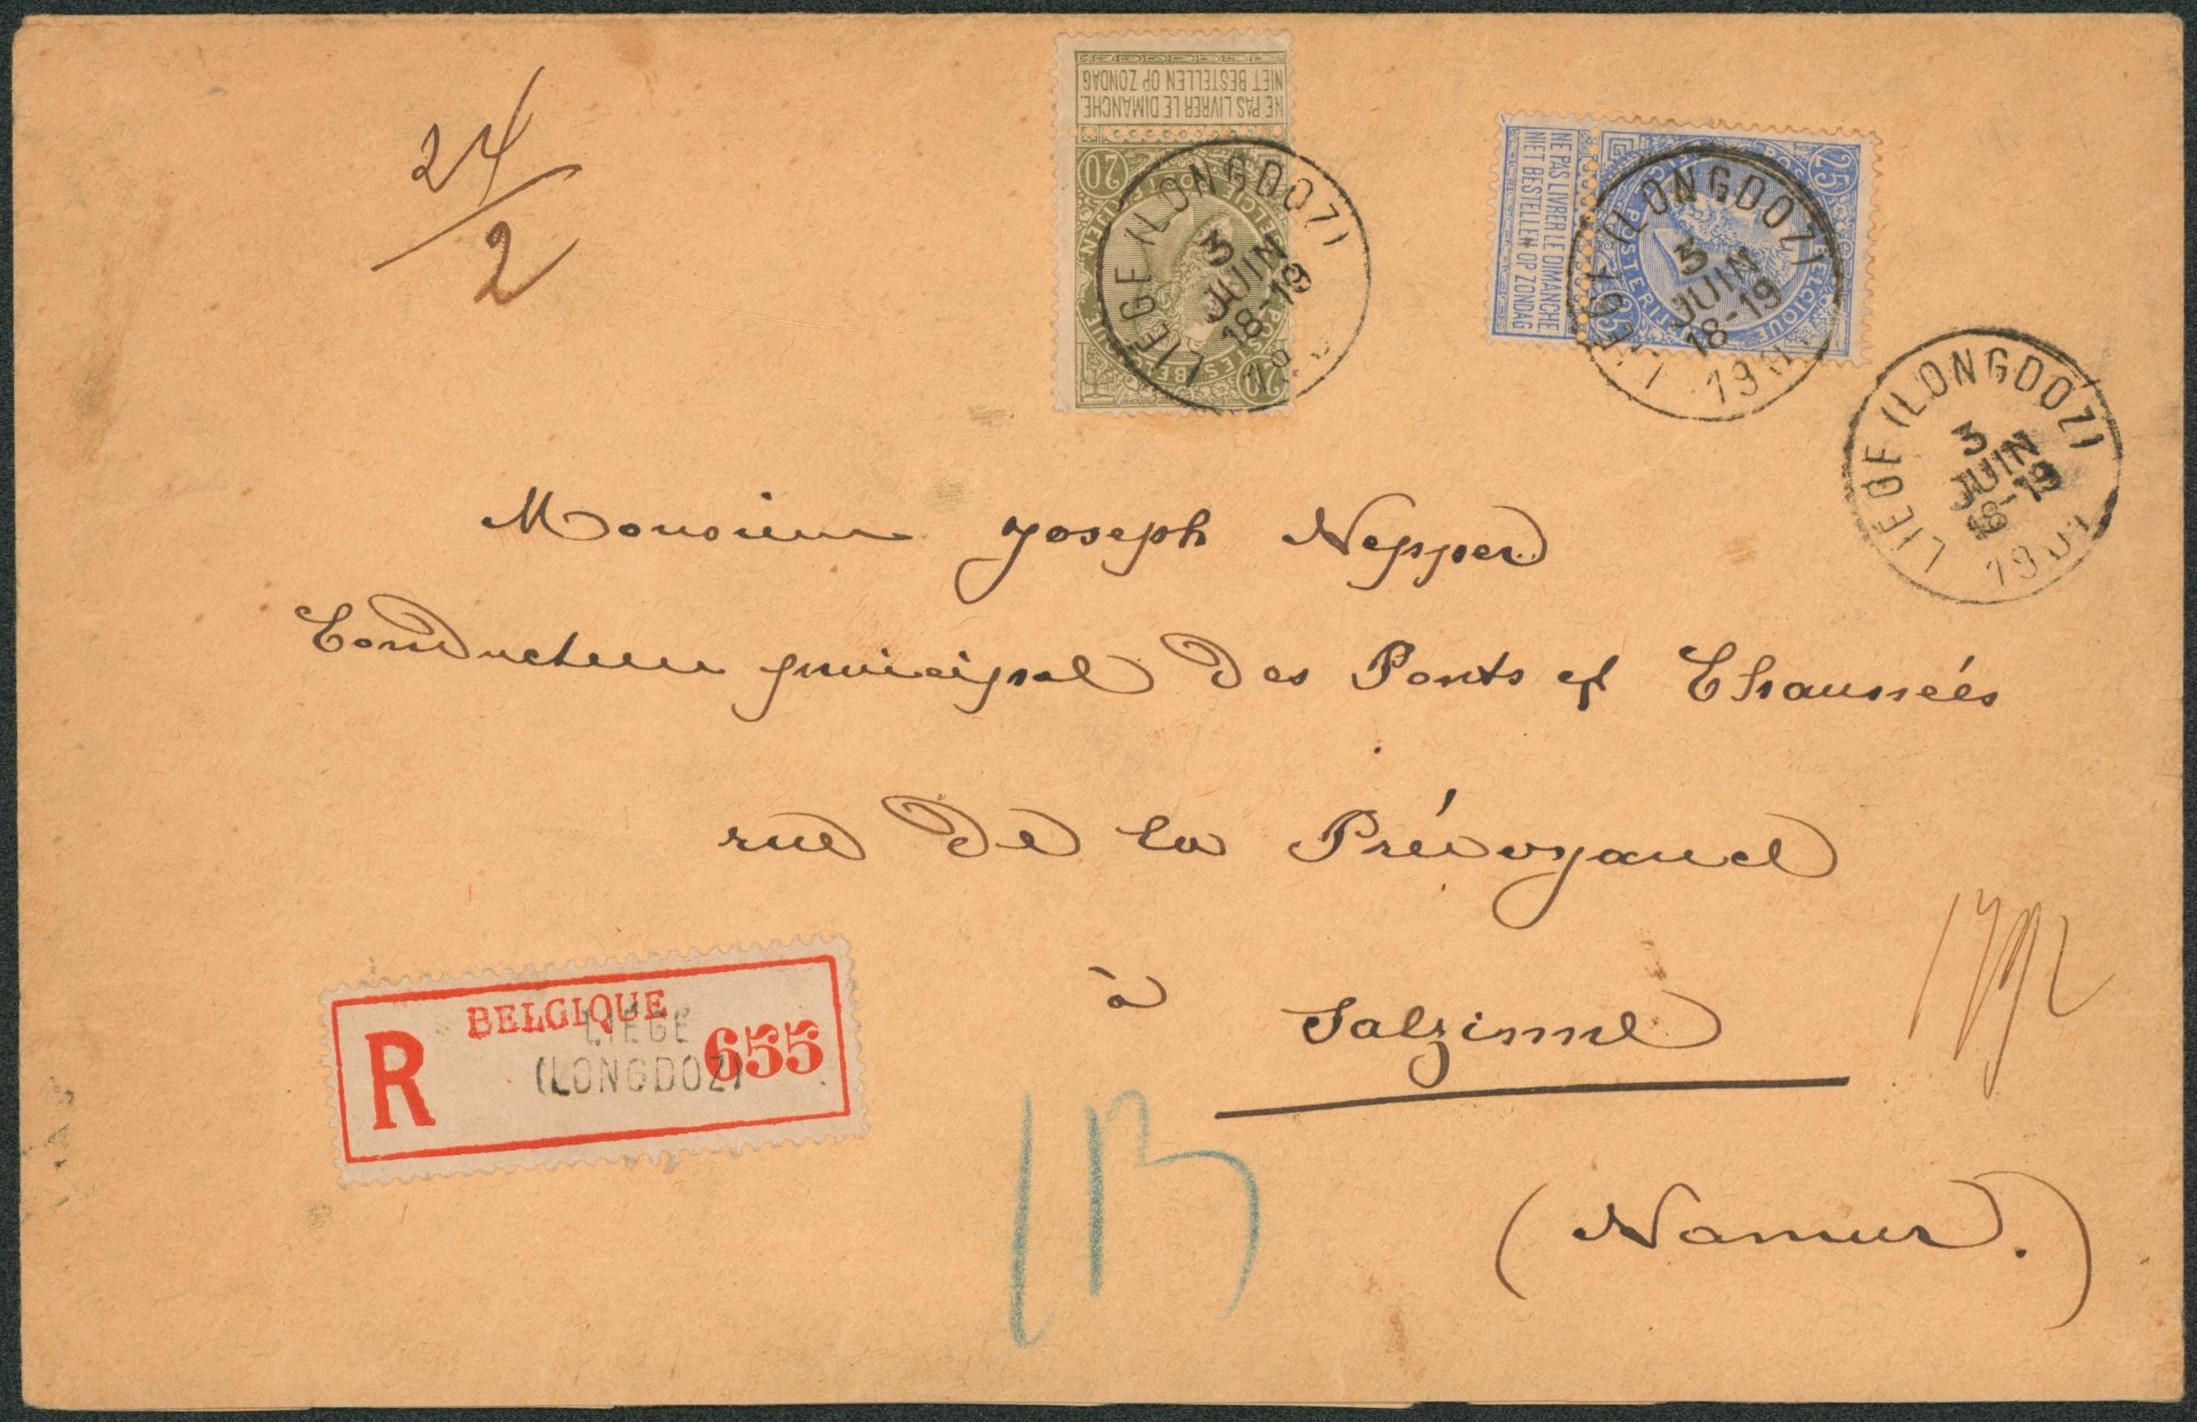 24
2
NE PAS LIVRER LE DIMANCHE.
NIET BESTELLEN OP ZONDAG
20
20
NE PAS LIVRER LE DIMANCHE
NIET BESTELLEN OP ZONDAG
25
25
LIEGE (LONGDOZ)
3
JUIN
18-19
19
LIEGE (LONGDOZ)
3
JUIN
18-19
19
LIEGE (LONGDOZ)
3
JUIN
18-19
1901
Monsieur Joseph Nepper
Conducteur principal des Ponts et Chaussées
rue de la Prévoyance
à Salzinne
(Namur.)
BELGIQUE
R
655
LIÉGE
(LONGDOZ)